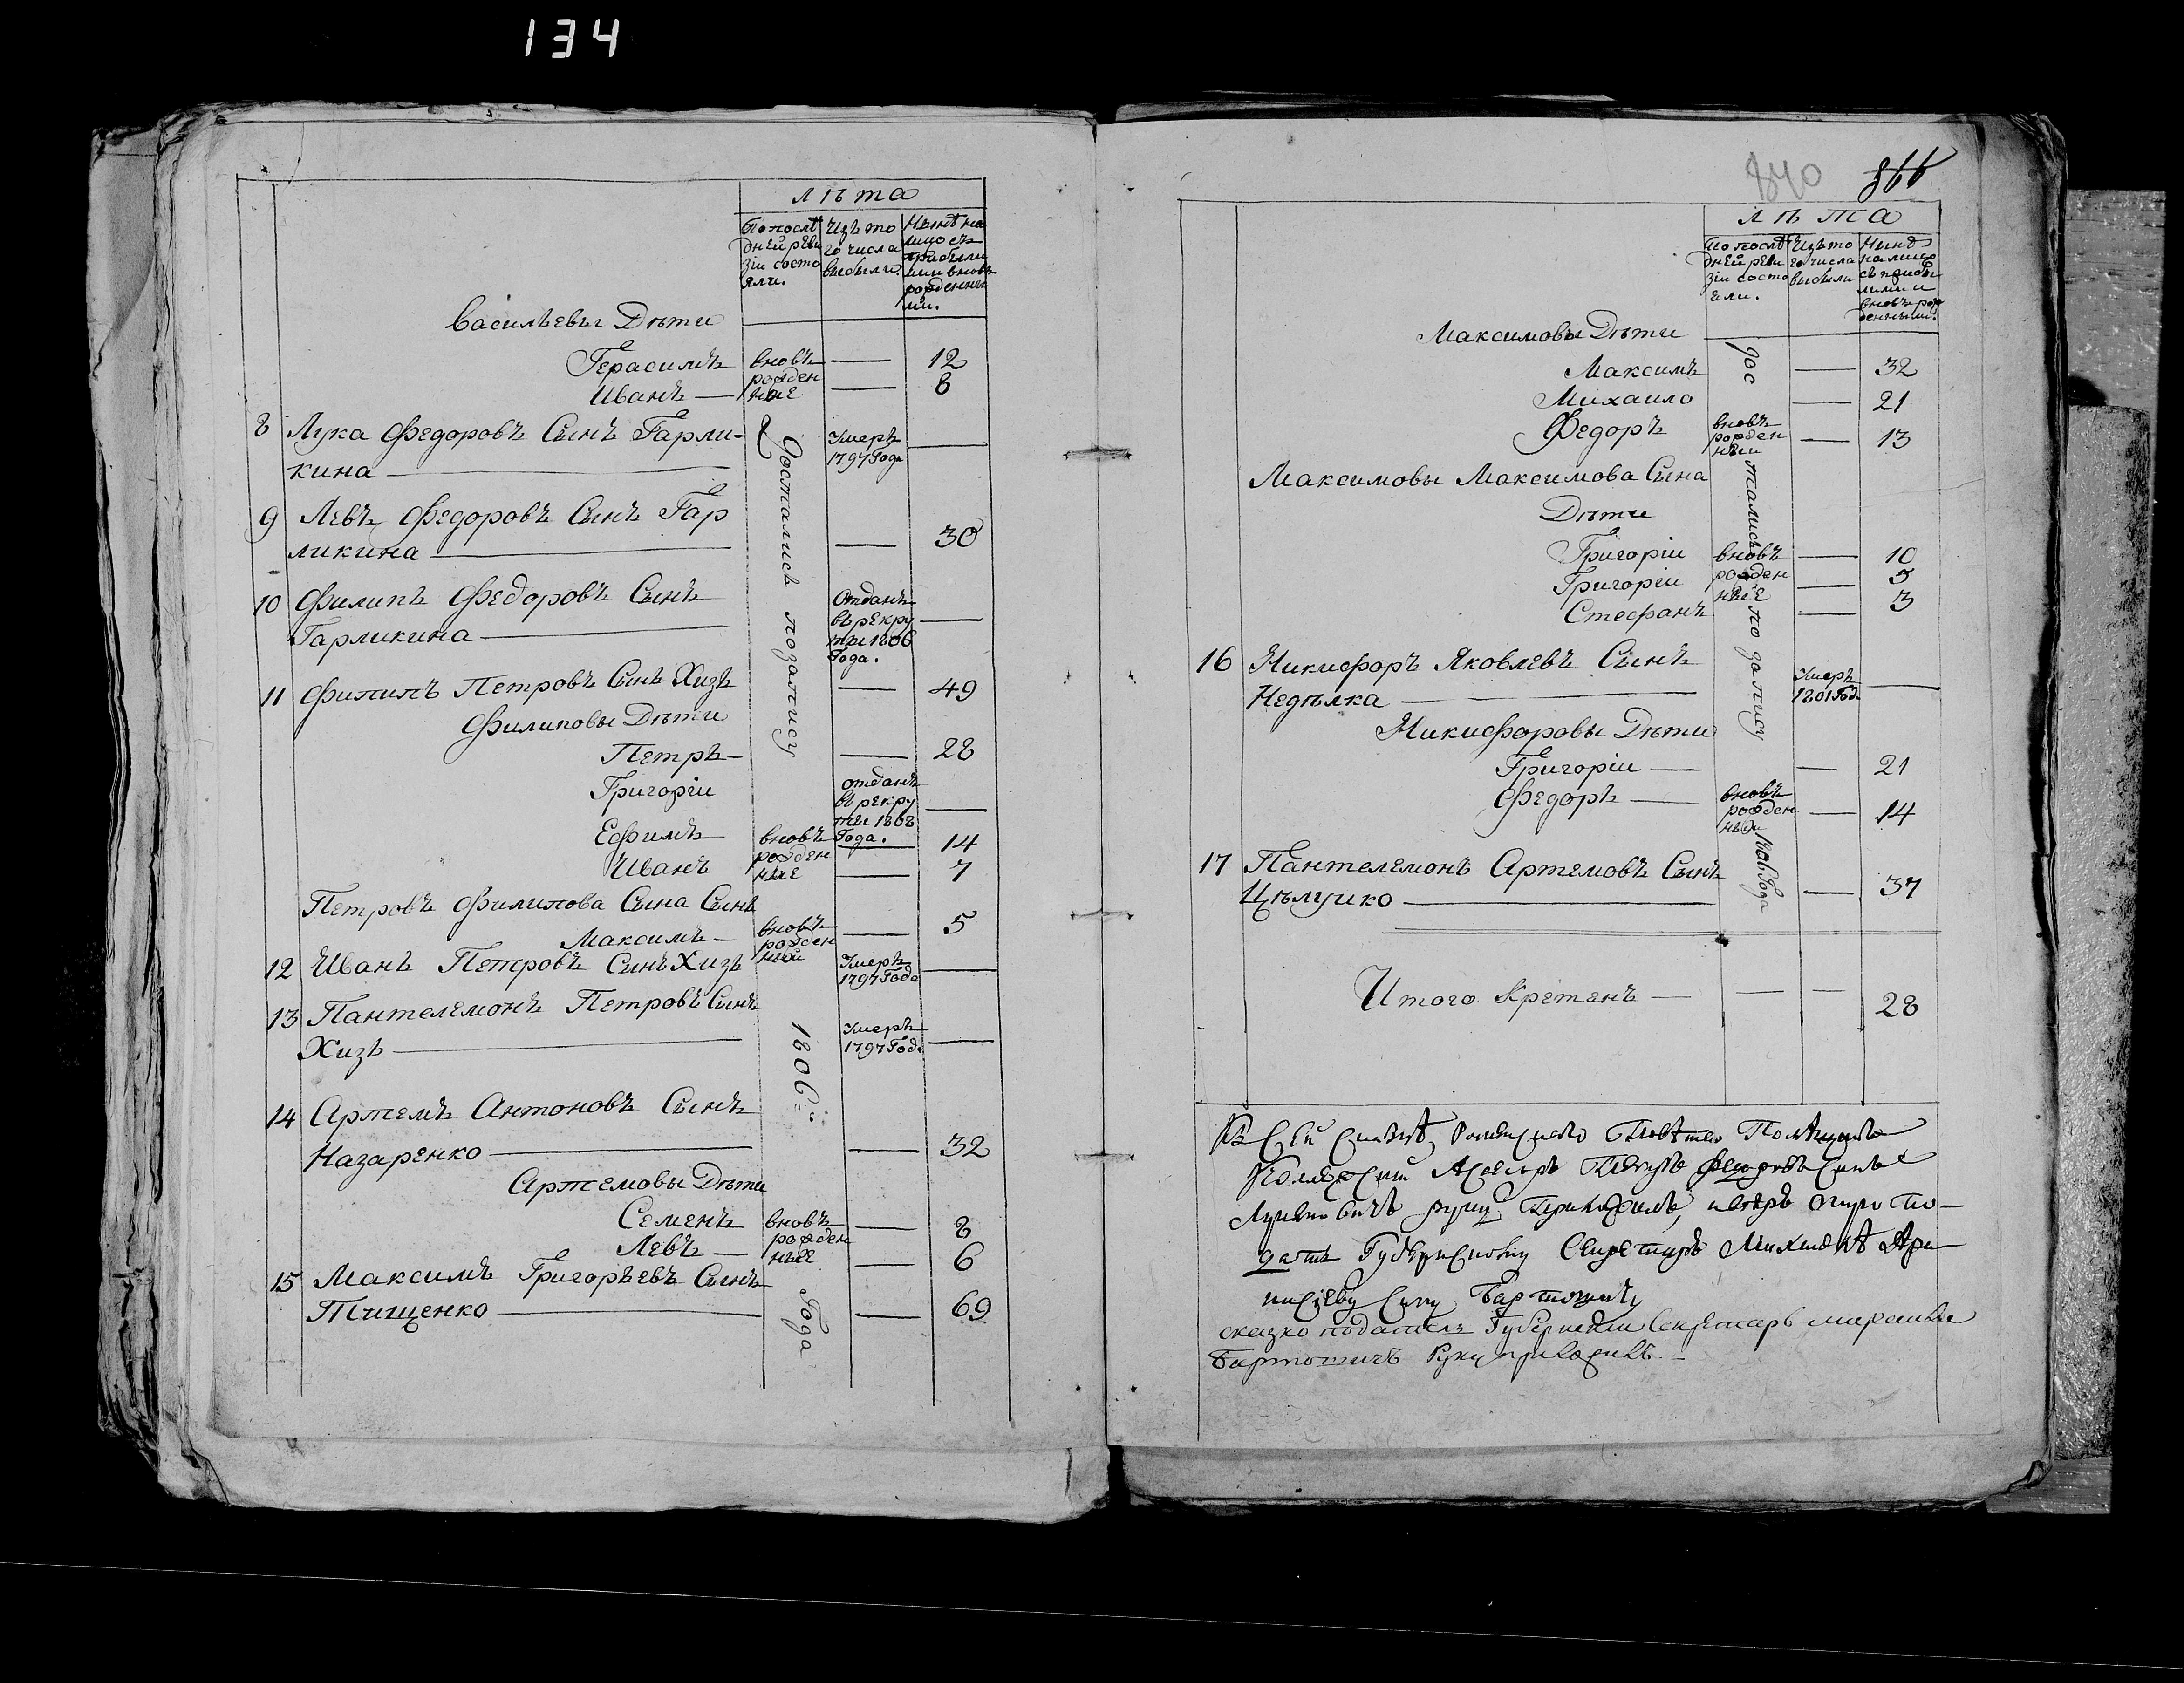 134
лѣта
По послѣ
дней реви
зіи состо
яли.
Изъ то
го числа
выбыли.
Нынѣ на
лицо съ
прибыли
ми и вновь
рожденны
ми.
Васильевы Дѣти
Герасимъ вновь — 12
Иванъ — рожден
ные — 8
8 Лука Федоровъ Сынъ Гарли-
кина — Умеръ
1797 Года —
9 Левъ Федоровъ Сынъ Гар
ликина — — 30
10 Филипъ Федоровъ Сынъ
Гарликина — Отданъ
въ рекру
ты 1806
Года. —
11 Филипъ Петровъ Сынъ Хизъ — 49
Филиповы Дѣти
Петръ — — 28
Григоріи отданъ
въ рекру
ты 1808
Года. —
Ефимъ вновь — 14
Иванъ рожден
ные — 7
Петровъ Филипова Сына Сынъ
Максимъ — вновь
рожден
ной — 5
12 Иванъ Петровъ Сынъ Хизъ Умеръ
1797 Года —
13 Пантелемонъ Петровъ Сынъ
Хизъ — Умеръ
1797 Года —
14 Артемъ Антоновъ Сынъ
Назаренко — — 32
Артемовы Дѣти
Семенъ вновь — 8
Левъ — рожден
ные — 6
15 Максимъ Григорьевъ Сынъ
Тищенко — — 69
Достались по запису
1806:
Года
840 866
лѣта
По послѣ
дней реви
зіи состо
яли.
Изъ то
го числа
выбыли
Нынѣ
на лицо
съ прибы
лыми и
вновь рож
денными.
Максимовы Дѣти
Максимъ — 32
Михаило — 21
Федоръ вновь
рожден
ныи — 13
Максимовы Максимова Сына
Дѣти
Григоріи вновь — 10
Григоріи рожден — 5
Стефанъ ные — 3
16 Никифоръ Яковлевъ Сынъ
Недѣлка — Умеръ
1801 Год. —
Никифоровы Дѣти
Григоріи — — 21
Федоръ — вновь
рожден
ныи — 14
17 Пантелемонъ Артемовъ Сынъ
Цѣлуико — — 37
Дос
тались
по запису
1806 Года
Итого Кретенъ — — — 28
Къ сей сказкѣ Роменскаго Повѣта Помѣщикъ
Колежский Асесоръ Федоровъ Сынъ
руку Приложилъ, по-
дать Губернскому Секретарю
сыну Бартошичу
сказко податель Губернскіи Секретарь
Бартошичъ Руку приложилъ. —